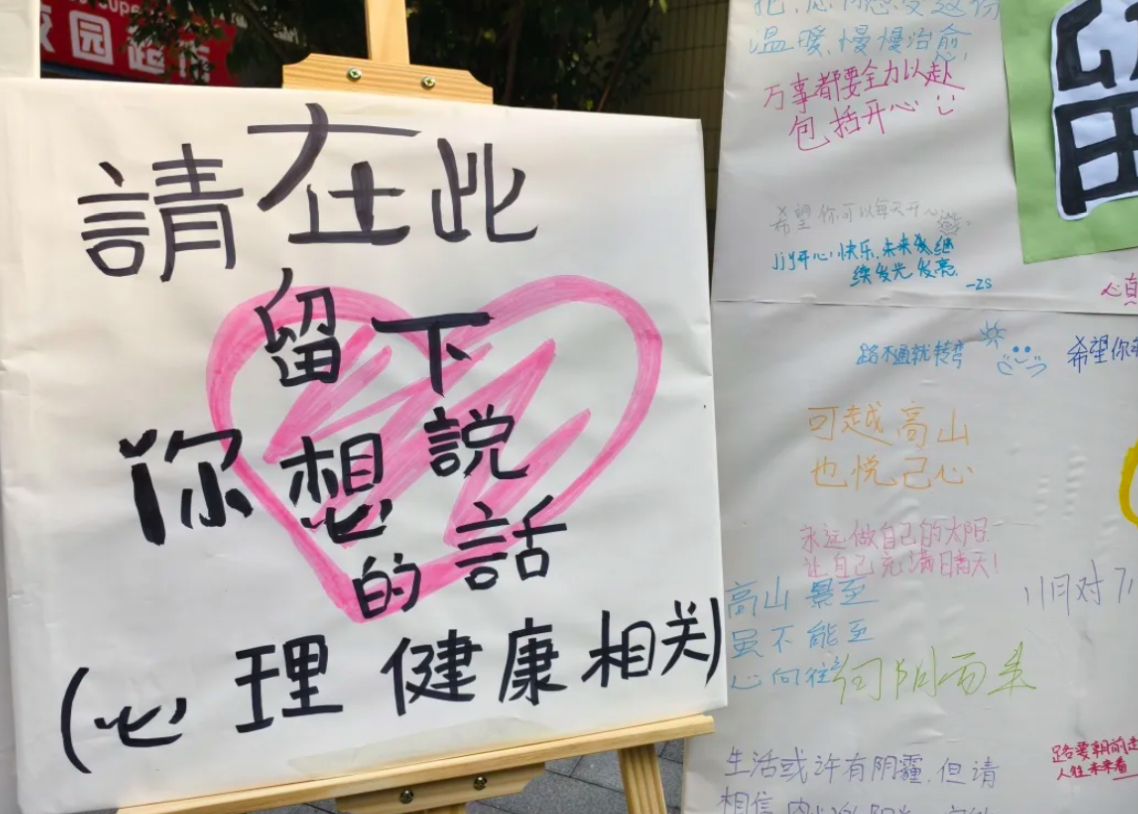 校园超市
請在此
留下
你想說
的話
(心理健康相关)
温暖,慢慢治愈
万事都要全力以赴
包括开心
希望你可以每天开心
jiy开心快乐,未来发继
续发光发亮
-ZS
路不通就转弯
希望你
可越高山
也悦己心
永远做自己的太阳
让自己充满晴天!
高山景至
虽不能至
心向往
向阳而来
生活或许有阴霾,但请
相信
路要朝前走
人往未来看
留